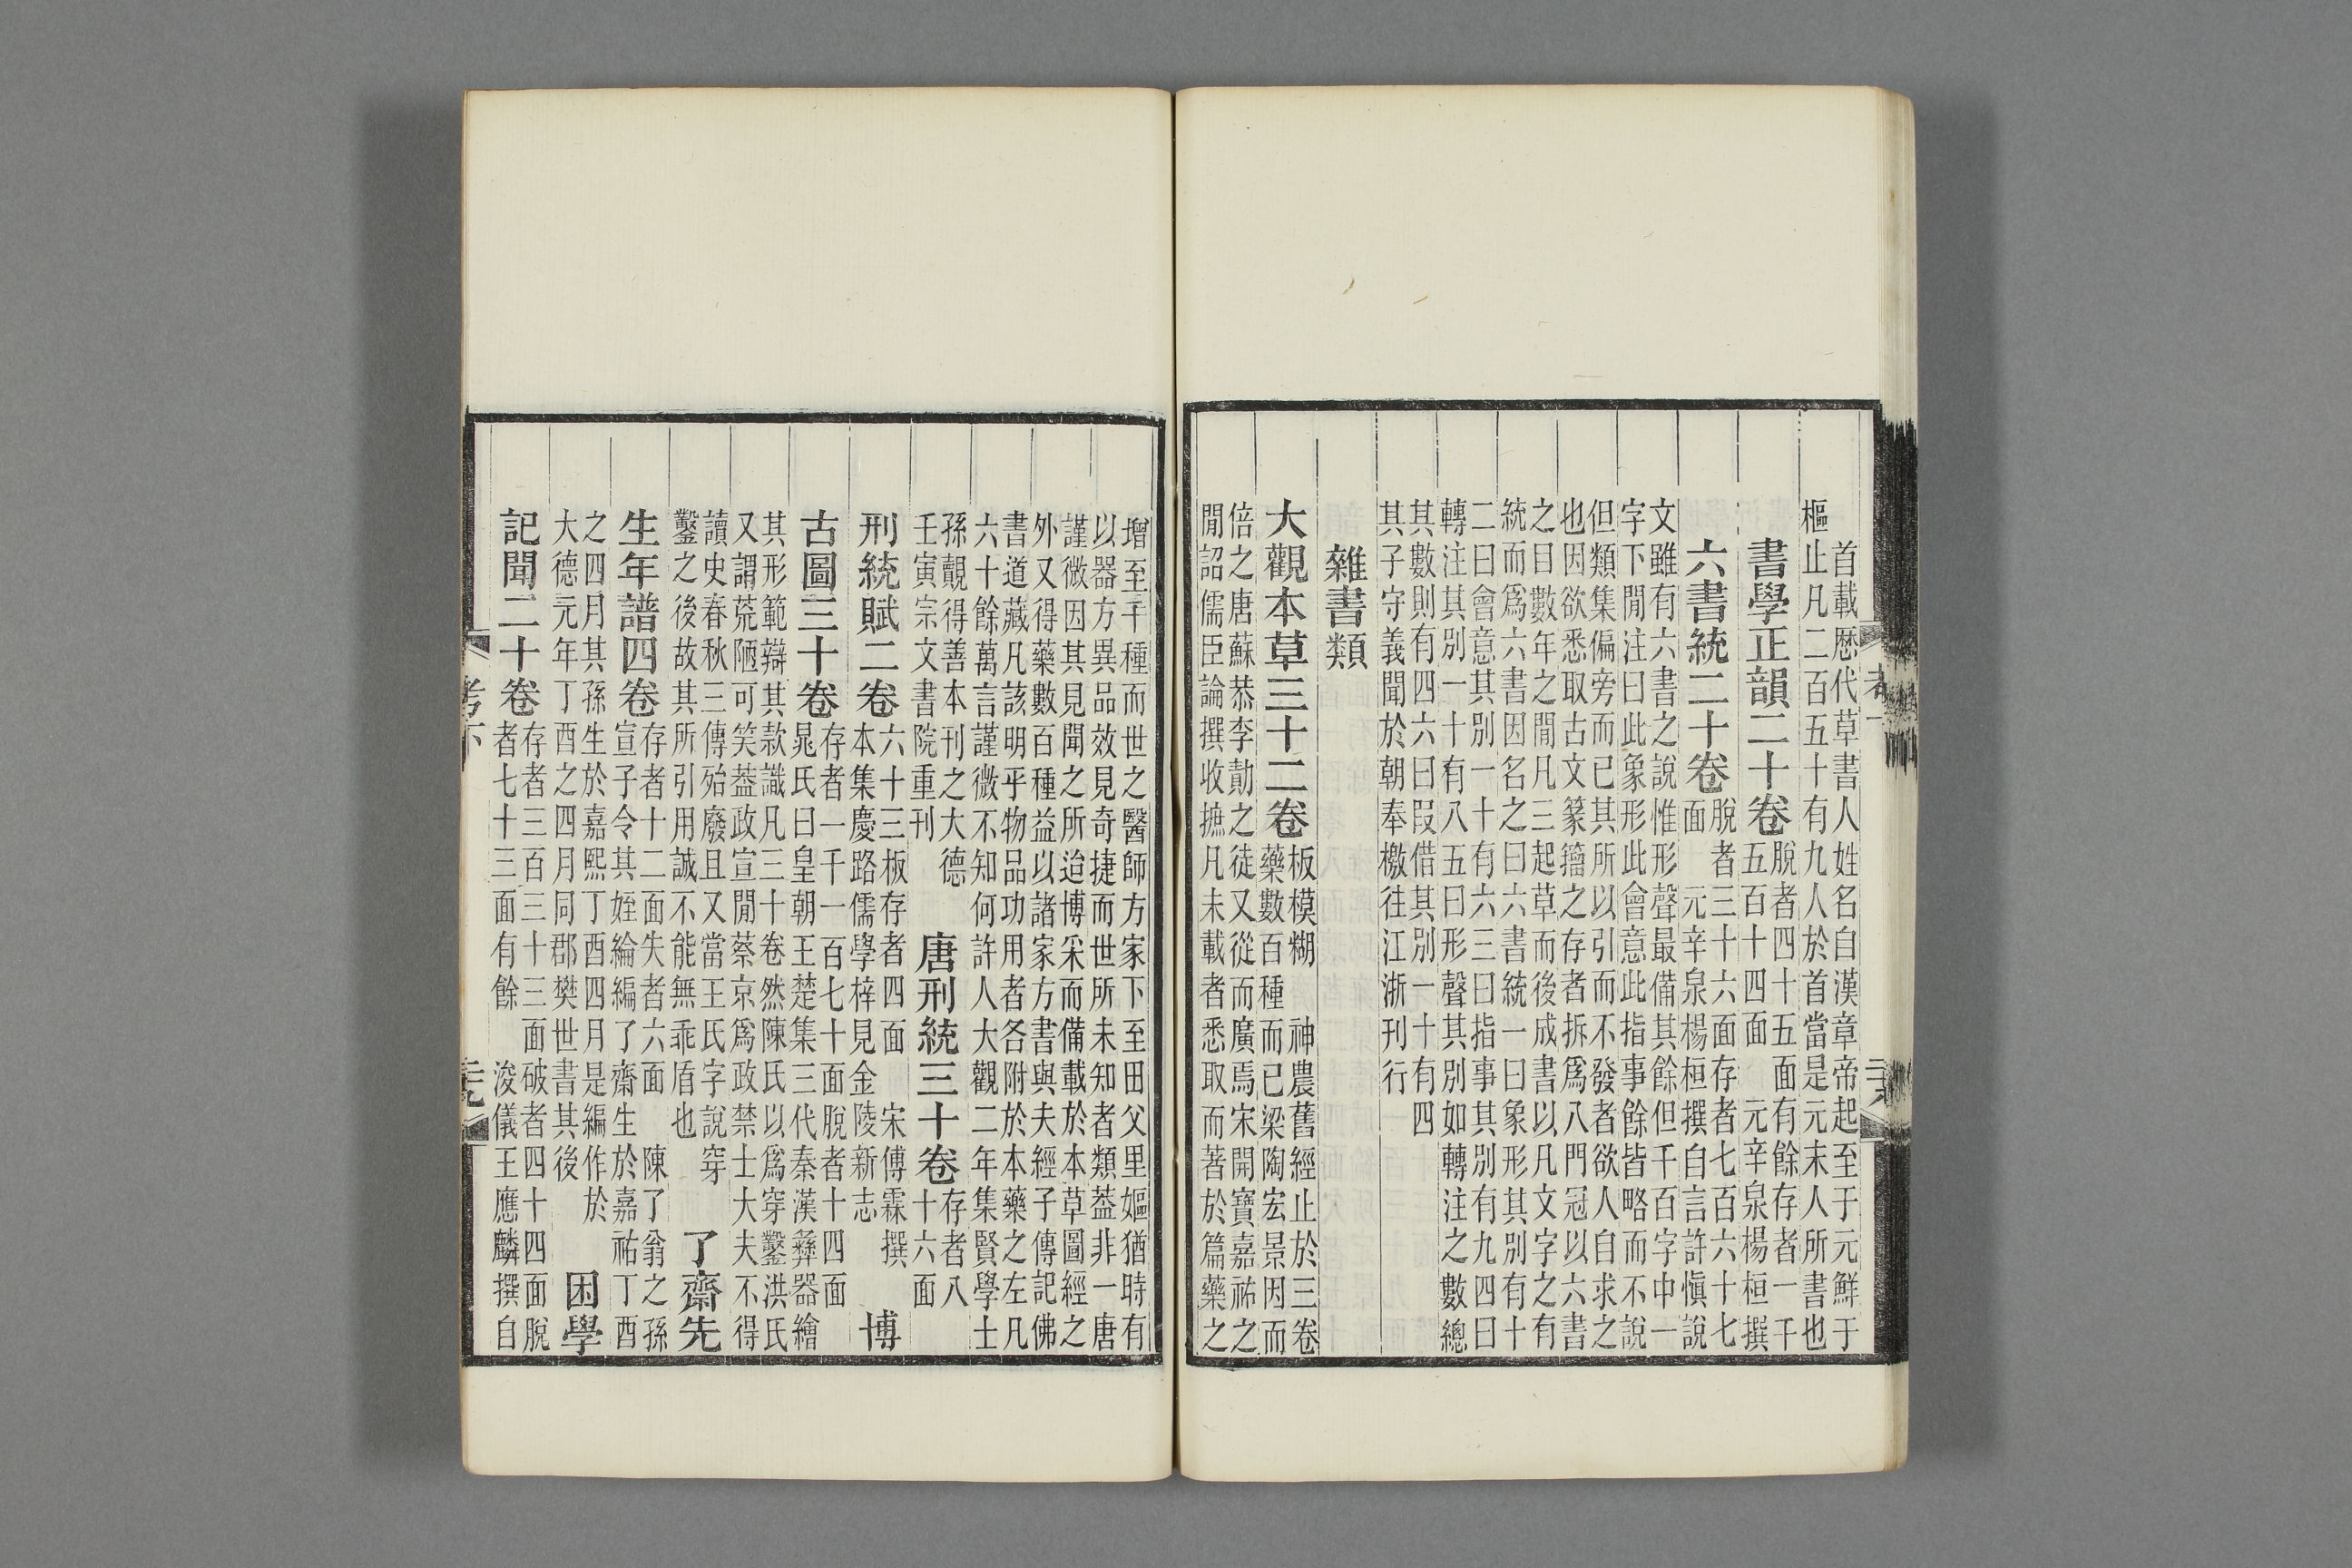 首載歷代草書人姓名自漢章帝起至于元鮮于
樞止凡二百五十有九人於首當是元末人所書也
書學正韻二十卷
脫者四十五面有餘存者一千
五百十四面　元辛泉楊桓撰
六書統二十卷
脫者三十六面存者七百六十七
面　元辛泉楊桓撰自言許愼說
文雖有六書之說惟形聲最備其餘但千百字中一
字下閒注曰此象形此會意此指事餘皆略而不說
但類集偏旁而已其所以引而不發者欲人自求之
也因欲悉取古文篆籀之存者拆爲八門冠以六書
之目數年之閒凡三起草而後成書以凡文字之有
統而爲六書因名之曰六書統一曰象形其別有十
二曰會意其別一十有六三曰指事其別有九四曰
轉注其別一十有八五曰形聲其別如轉注之數總
其數則有四六曰叚借其別一十有四
其子守義聞於朝奉檄往江浙刊行
雜書類
大觀本草三十二卷
板模糊　神農舊經止於三卷
藥數百種而已梁陶宏景因而
倍之唐蘇恭李勣之徒又從而廣焉宋開寶嘉祐之
閒詔儒臣論撰收摭凡未載者悉取而著於篇藥之
增至千種而世之醫師方家下至田父里嫗猶時有
以器方異品效見奇捷而世所未知者類葢非一唐
謹微因其見聞之所迨博采而備載於本草圖經之
外又得藥數百種益以諸家方書與夫經子傳記佛
書道藏凡該明乎物品功用者各附於本藥之左凡
六十餘萬言謹微不知何許人大觀二年集賢學士
孫覿得善本刊之大德
壬寅宗文書院重刊
唐刑統三十卷
存者八
十六面
刑統賦二卷
六十三板存者四面　宋傅霖撰
本集慶路儒學梓見金陵新志
博
古圖三十卷
存者一千一百七十面脫者十四面
晁氏曰皇朝王楚集三代秦漢彝器繪
其形範辯其款識凡三十卷然陳氏以爲穿鑿洪氏
又謂荒陋可笑葢政宣閒蔡京爲政禁士大夫不得
讀史春秋三傳殆廢且又當王氏字說穿
鑿之後故其所引用誠不能無乖盾也
了齋先
生年譜四卷
存者十二面失者六面　陳了翁之孫
宣子令其姪綸編了齋生於嘉祐丁酉
之四月其孫生於嘉熙丁酉四月是編作於
大德元年丁酉之四月同郡樊世書其後
困學
記聞二十卷
存者三百三十三面破者四十四面脫
者七十三面有餘　浚儀王應麟撰自
考下